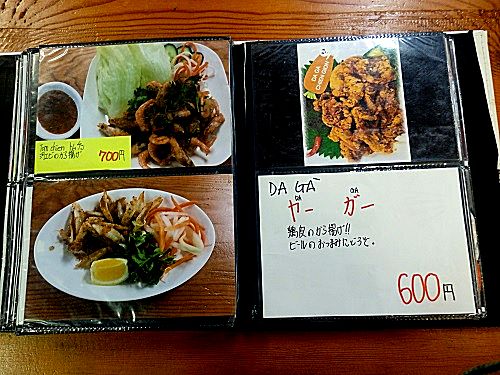 Tôm chiên bơ tỏi
700円
DA GÀ CHIÊN GIÒN
DA GÀ
DA GA
ヤー ガー
鶏皮のから揚げ!!
ビールのおつまみにどうぞ。
600円